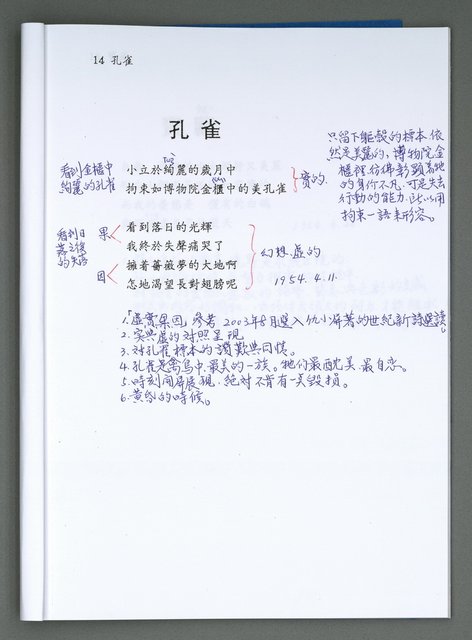 14 孔雀
孔雀
小立於絢麗的歲月中
拘束如博物院金櫃中的美孔雀
看到落日的光輝
我終於失聲痛哭了
擁着薔薇夢的大地啊
怎地渴望長對翅膀呢
1954.4.11.
看到金櫃中
絢麗的孔雀
實的
只留下軀殼的標本依
然是美麗的,博物院金
櫃裡彷彿彰顯著牠
的身价不凡,可是失去
行動的能力,所以用
拘束一語來形容。
看到日
落之後
的失落
果
因
幻想,虛的
1.「虛實果因」參考 2003年8月選入仇小屏著的世紀新詩選讀。
2.實與虛的对照呈現。
3.对孔雀標本的讚歎與同情。
4.孔雀是禽鳥中最美的一族。牠們最酷美、最自恋。
5.時刻開屏展現,絕对不肯有一天毀損。
6.黃昏的時候。